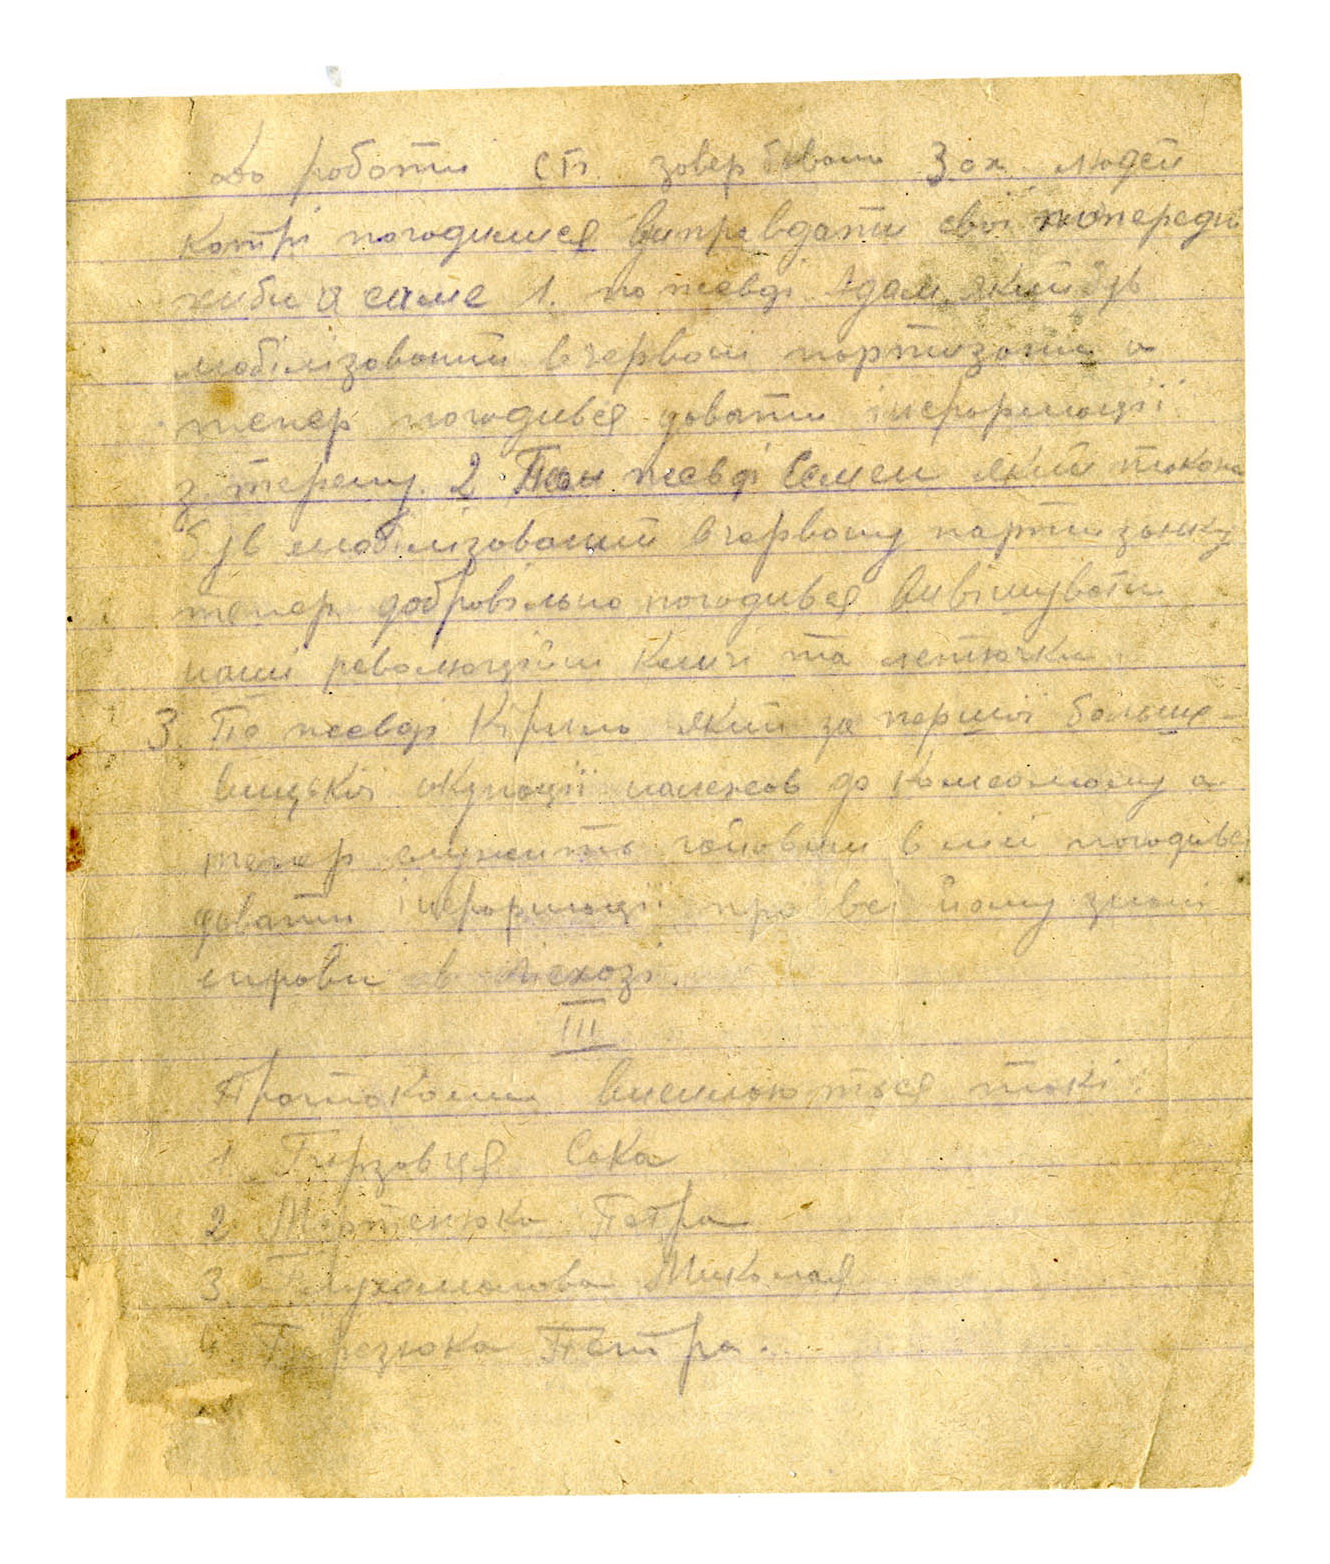 до роботи СП. завербовани 3 ох людей
Котрі погодилися виправдати свої попередні
хиби а саме 1. по псевді Адам, який був
мобілізований в червоні партизани а
тепер погодився давати інформації
з терену. 2 По псевді Семен який також
був мобілізований в червону партизанку
тепер добровільно погодився вивішувати
наші революційни кличі та летючки.
3. По псевді Кірило який за першої больше-
вицької окупації належав до комсомолу а
тепер служить гайовим в лісі погодився
давати інформації про всі йому знані
справи в лісхозі.
III
Протоколи висилаються такі:
1. Сака
2. Мартенюка Петра
3. Миколая
4. Петра.